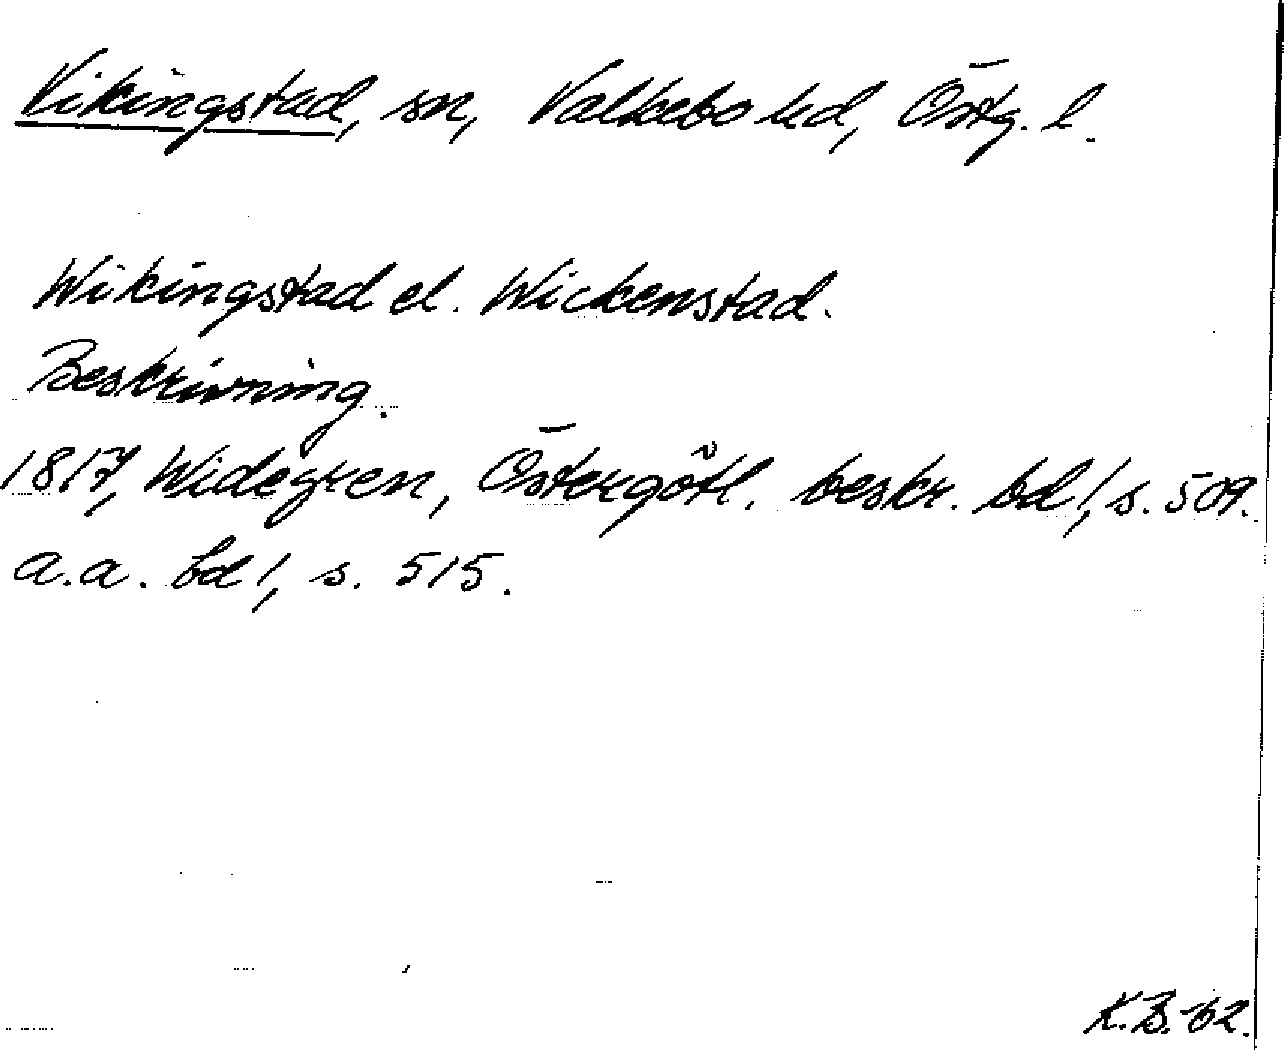 Vikingstad, sn, Valkebo hd, Östg. l.
Wikingstad el. Wickenstad.
Beskrivning.
1817, Widegren, Östergötl. beskr. bd 1, s. 509.
a.a. bd 1, s. 515.
K.B.-62.